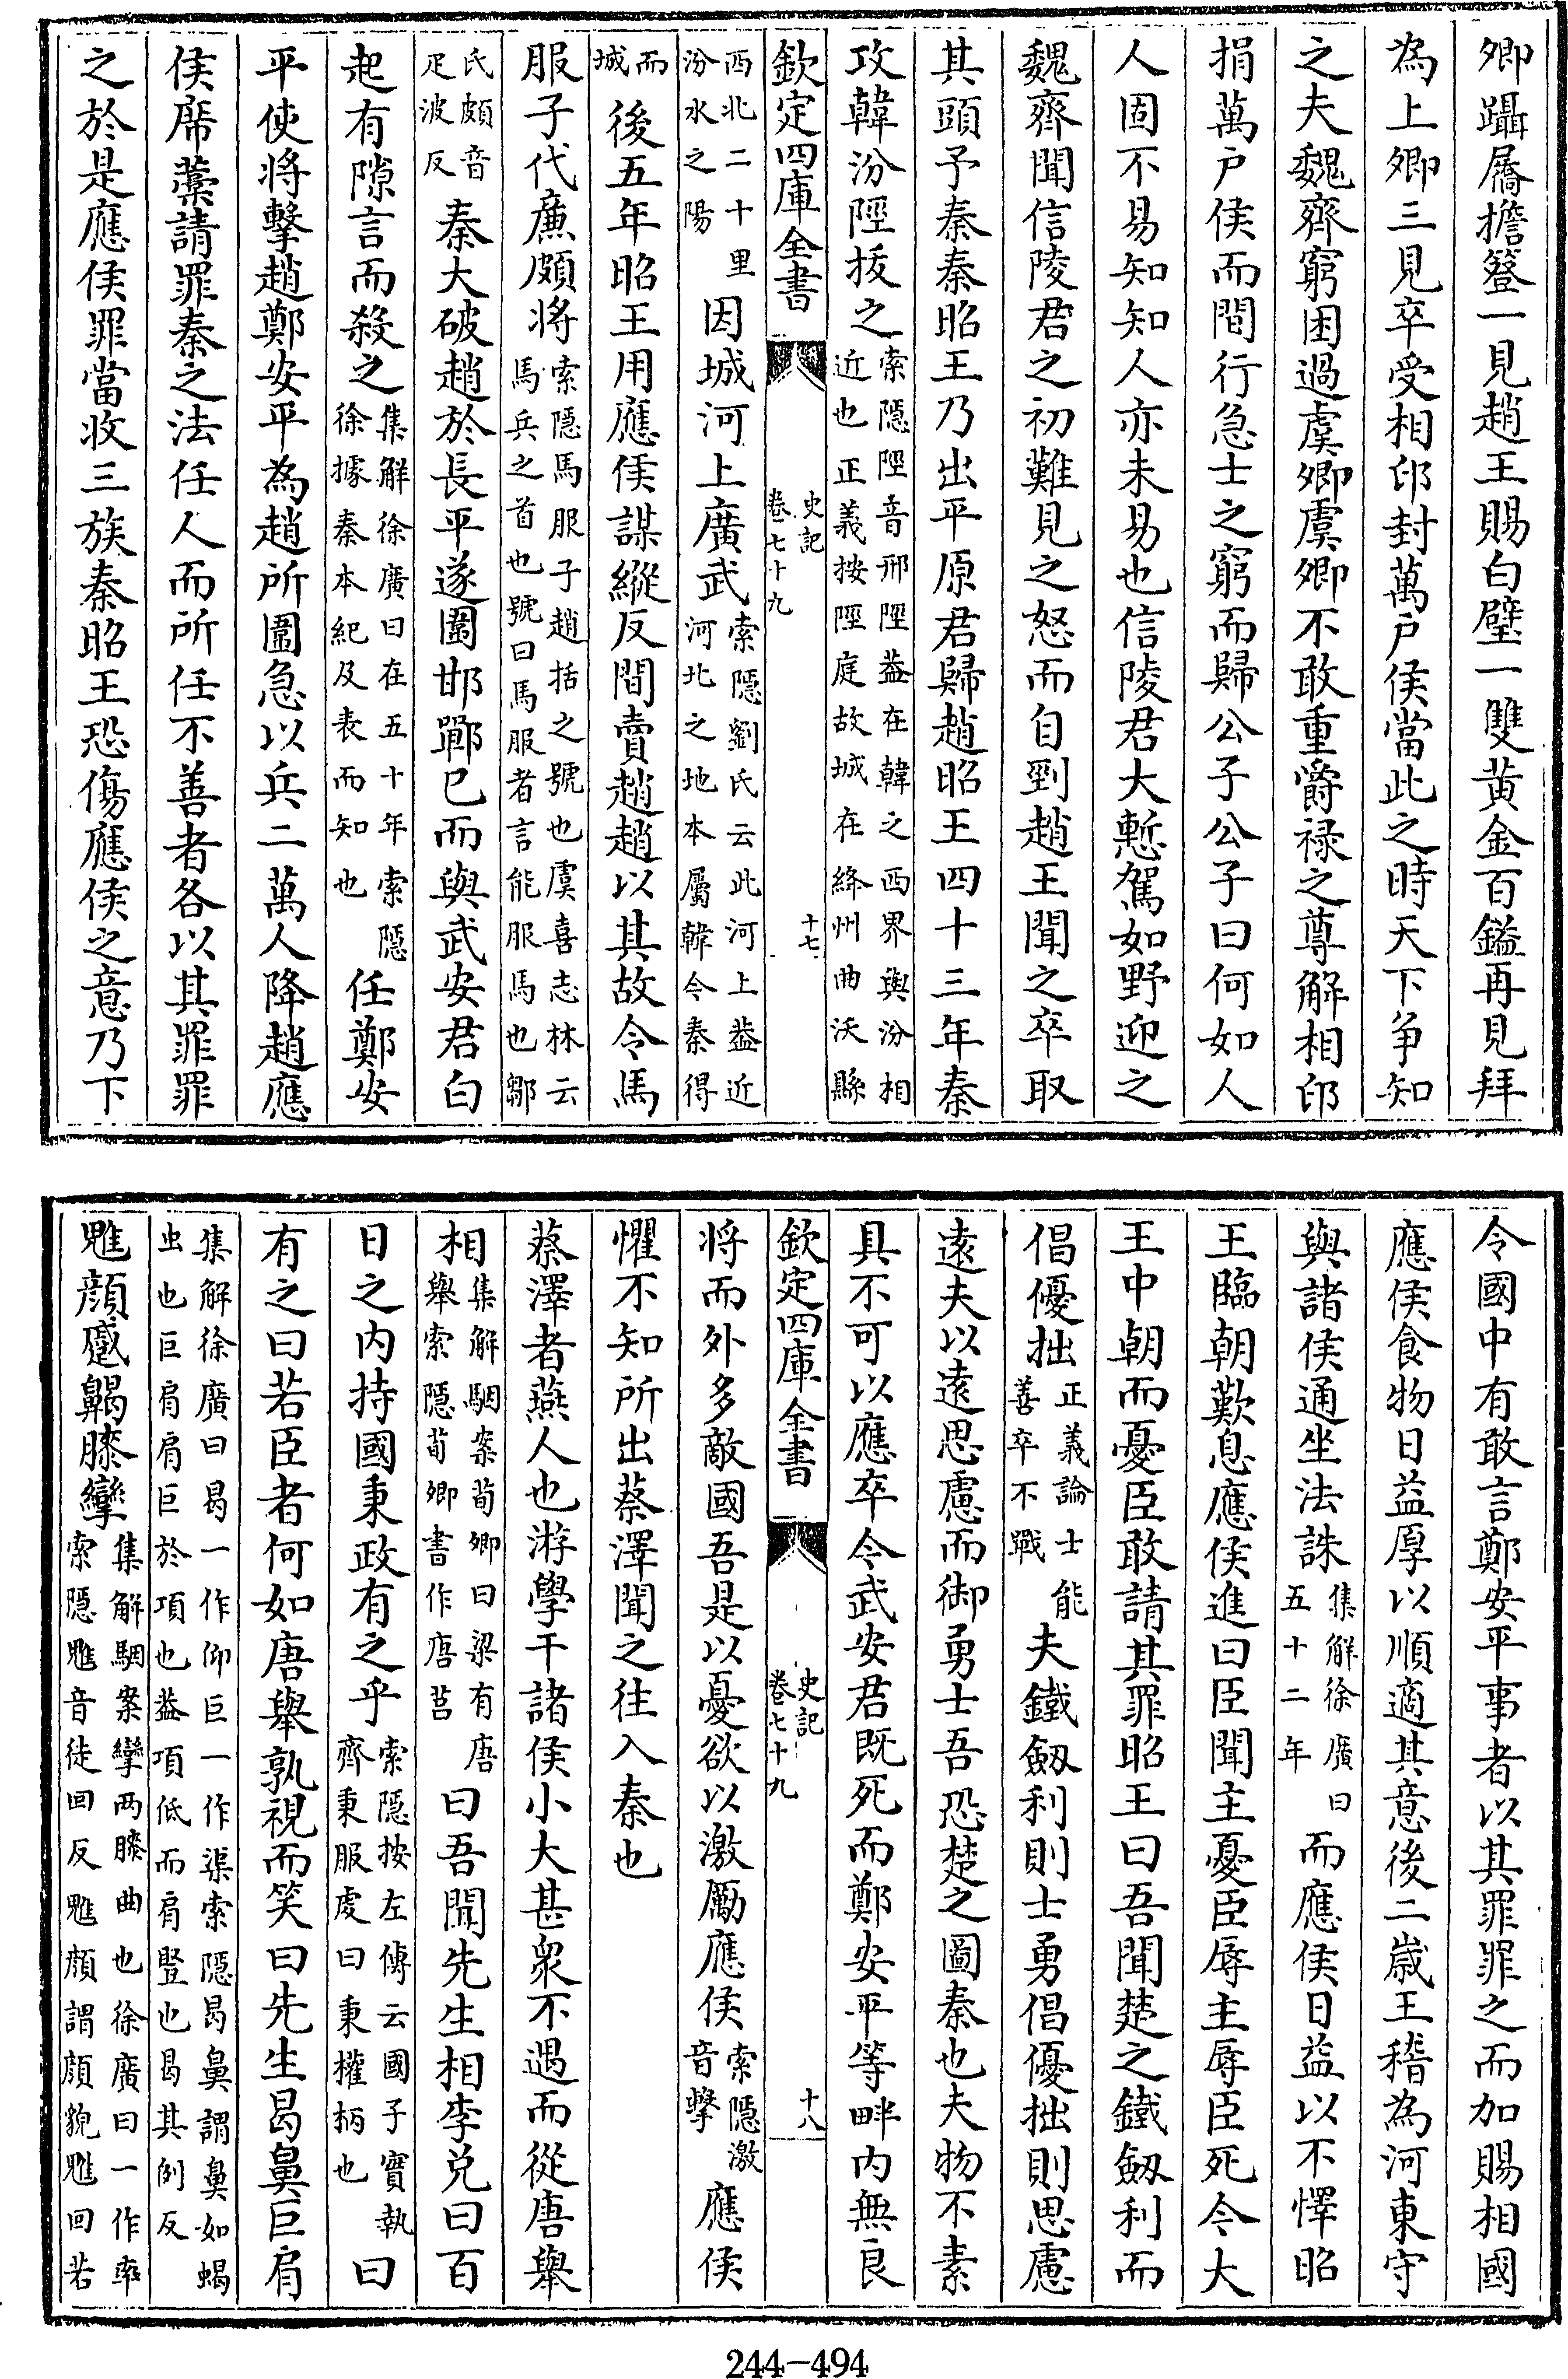 卿躡屩擔簦一見趙王賜白璧一雙黄金百鎰再見拜
為上卿三見卒受相印封萬戶侯當此之時天下争知
之夫魏齊窮困過虞卿虞卿不敢重爵禄之尊解相印
捐萬戶侯而間行急士之窮而歸公子公子曰何如人
人固不易知知人亦未易也信陵君大慙駕如野迎之
魏齊聞信陵君之初難見之怒而自剄趙王聞之卒取
其頭予秦秦昭王乃出平原君歸趙昭王四十三年秦
攻韓汾陘拔之索隱陘音邢陘葢在韓之西界與汾相近也正義按陘庭故城在絳州曲沃縣
欽定四庫全書 史記卷七十九 十七
西北二十里汾水之陽因城河上廣武索隱劉氏云此河上葢近河北之地本屬韓今秦得
而城後五年昭王用應侯謀縱反間賣趙趙以其故令馬
服子代廉頗將索隱馬服子趙括之號也虞喜志林云馬兵之首也號曰馬服者言能服馬也鄒
氏頗音疋波反秦大破趙於長平遂圍邯鄲已而與武安君白
起有隙言而殺之集解徐廣曰在五十年索隱徐據秦本紀及表而知也任鄭安
平使將擊趙鄭安平為趙所圍急以兵二萬人降趙應
侯席藁請罪秦之法任人而所任不善者各以其罪罪
之於是應侯罪當收三族秦昭王恐傷應侯之意乃下
令國中有敢言鄭安平事者以其罪罪之而加賜相國
應侯食物日益厚以順適其意後二嵗王稽為河東守
與諸侯通坐法誅集解徐廣曰五十二年而應侯日益以不懌昭
王臨朝歎息應侯進曰臣聞主憂臣辱主辱臣死今大
王中朝而憂臣敢請其罪昭王曰吾聞楚之鐵劔利而
倡優拙正義論士能善卒不戰夫鐵劔利則士勇倡優拙則思慮
逺夫以逺思慮而御勇士吾恐楚之圖秦也夫物不素
具不可以應卒今武安君既死而鄭安平等畔内無良
欽定四庫全書 史記卷七十九 十八
將而外多敵國吾是以憂欲以激厲應侯索隱激音擊應侯
懼不知所出蔡澤聞之往入秦也
蔡澤者燕人也游學干諸侯小大甚衆不遇而從唐舉
相集解駰案荀卿曰梁有唐舉索隱荀卿書作唐莒曰吾聞先生相李兌曰百
日之内持國秉政有之乎索隱按左傳云國子實執齊秉服䖍曰秉權柄也曰
有之曰若臣者何如唐舉孰視而笑曰先生曷鼻巨肩
集解徐廣曰曷一作仰巨一作渠索隱曷鼻謂鼻如蝎虫也巨肩肩巨於項也葢項低而肩豎也曷其例反
魋顔蹙齃膝攣集解駰案攣兩膝曲也徐廣曰一作率索隱魋音徒回反魋顔謂顔貌魋回若
244-494